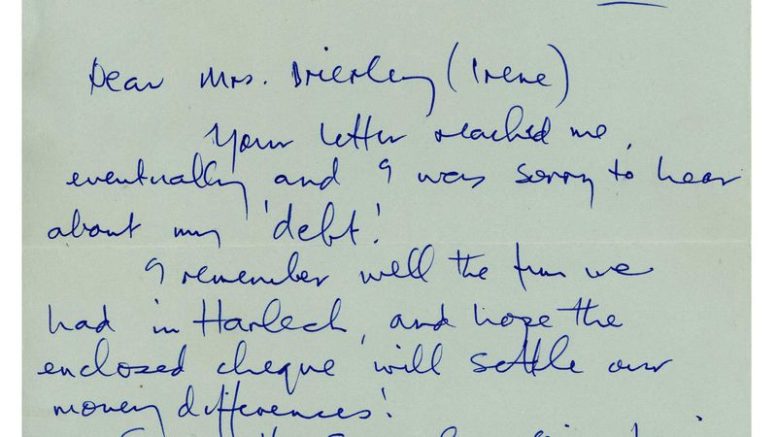 Dear Mrs. Brierley (Irene)
Your letter reached me,
eventually and I was sorry to hear
about my 'debt'!
I remember well the fun we
had in Harlech, and hope the
enclosed cheque will settle our
money differences!